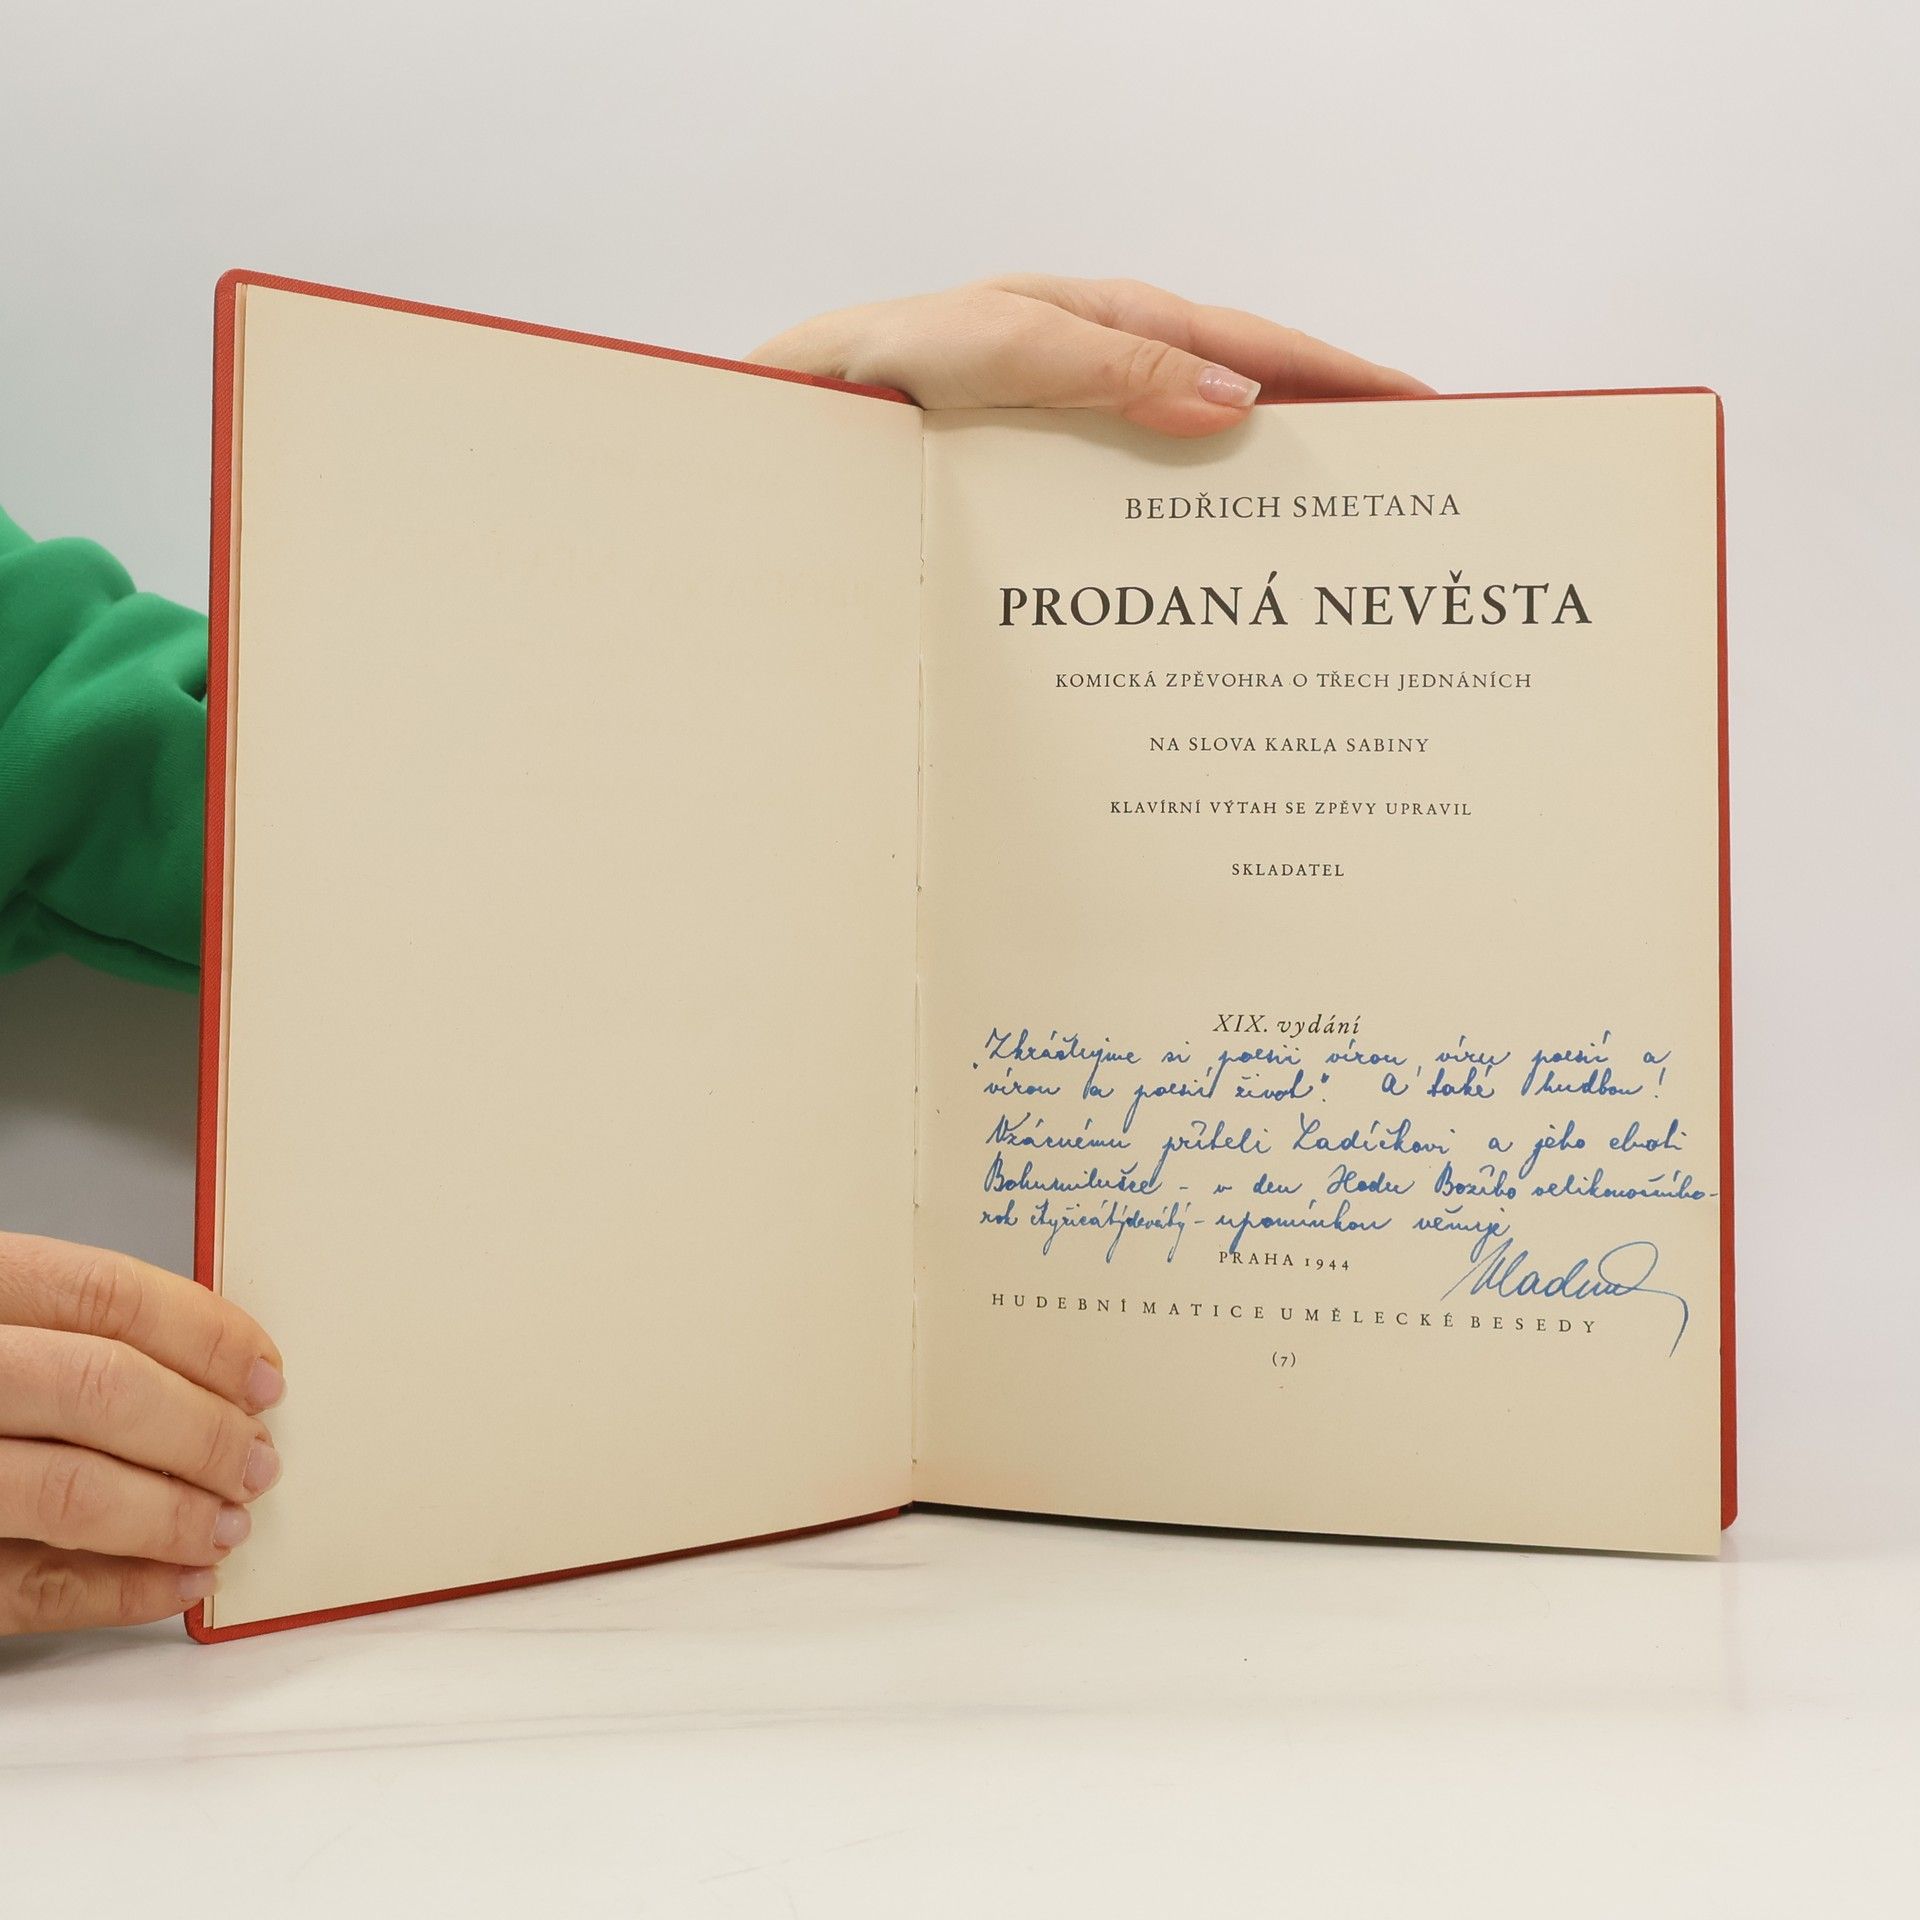 BEDŘICH SMETANA
PRODANÁ NEVĚSTA
KOMICKÁ ZPĚVOHRA O TŘECH JEDNÁNÍCH
NA SLOVA KARLA SABINY
KLAVÍRNÍ VÝTAH SE ZPĚVY UPRAVIL
SKLADATEL
XIX. vydání
"Zkrášlujme si poesii vírou, víru poesií a
vírou a poesií život". A také hudbou!
Vzácnému příteli Ladíčkovi a jeho choti
Bohumilušce - v den Hodu Božího velikonočního -
rok čtyřicátýdevátý - upomínkou věnuje
PRAHA 1944
HUDEBNÍ MATICE UMĚLECKÉ BESEDY
(7)